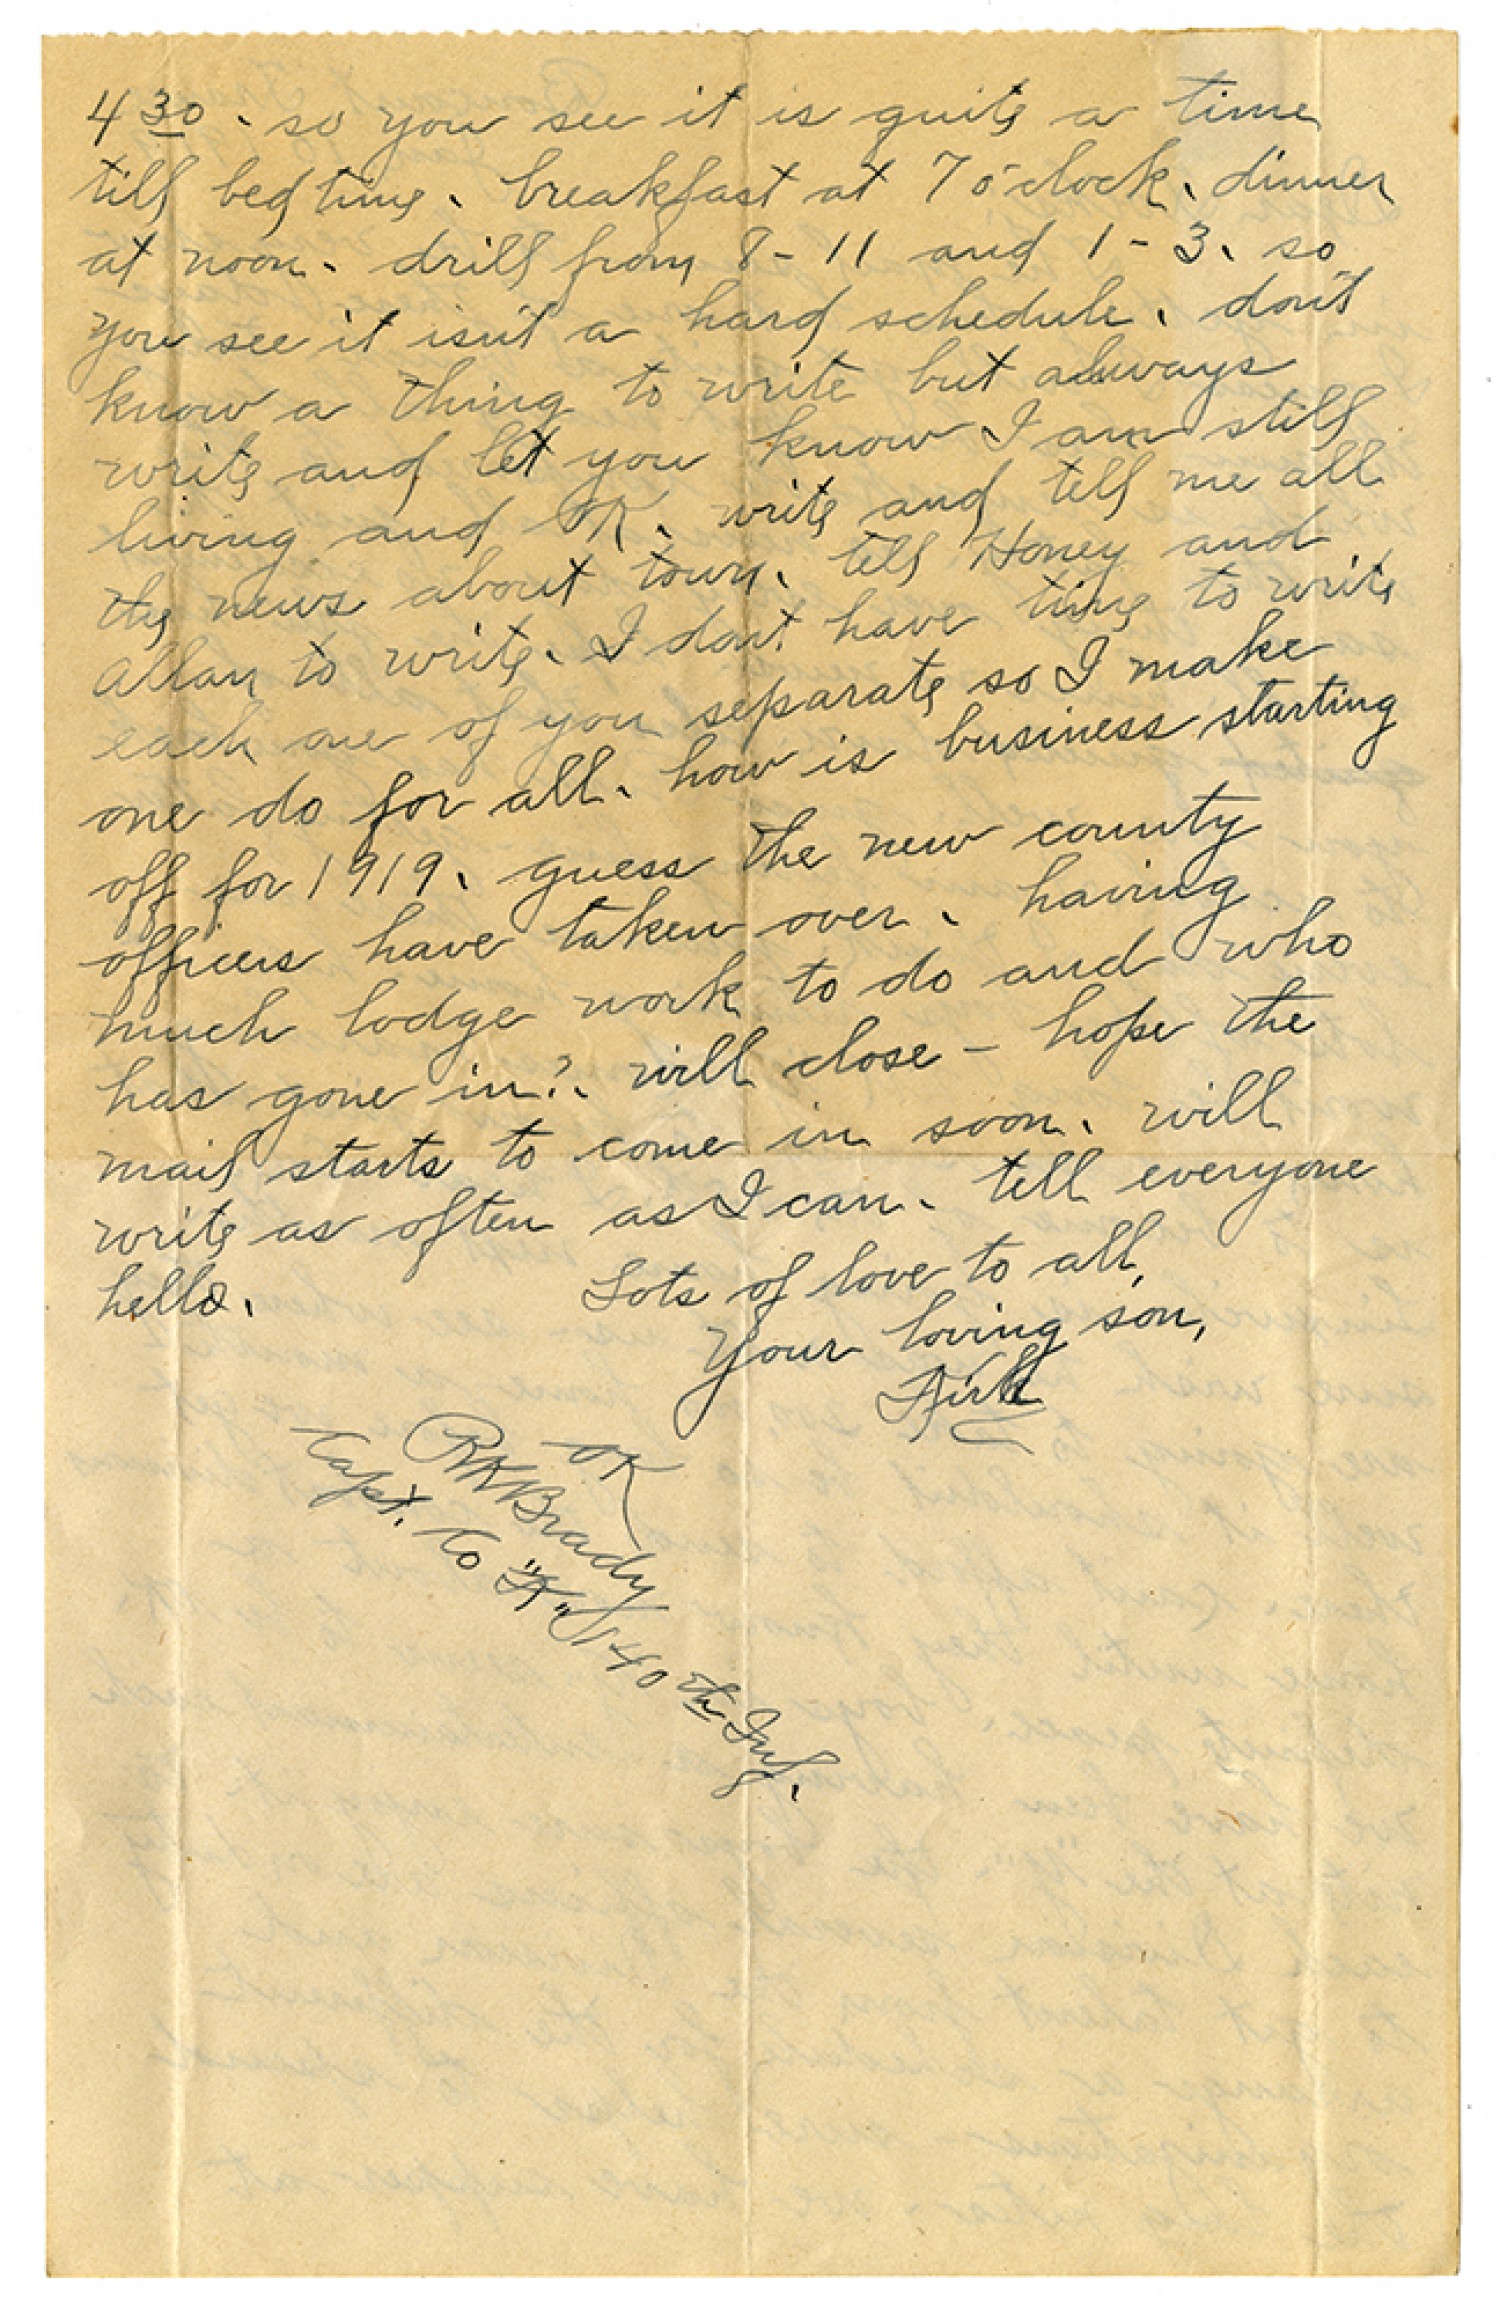 4 30. so you see it is quite a time
till bed time. breakfast at 7 o'clock. dinner
at noon. drill from 8-11 and 1-3. so
you see it isn't a hard schedule. don't
know a thing to write but always
write and let you know I am still
living and OK. write and tell me all
the news about town. tell Honey and
Allan to write. I don't have time to write
each one of you separate so I make
one do for all. how is business starting
off for 1919. guess the new county
officers have taken over. having
much lodge work to do and who
has gone in?. will close - hope the
mail starts to come in soon. will
write as often as I can. tell everyone
hello.
Lots of love to all,
Your loving son,
Kirk
OK
RKBrady
Capt. Co "K" 140th Inf.